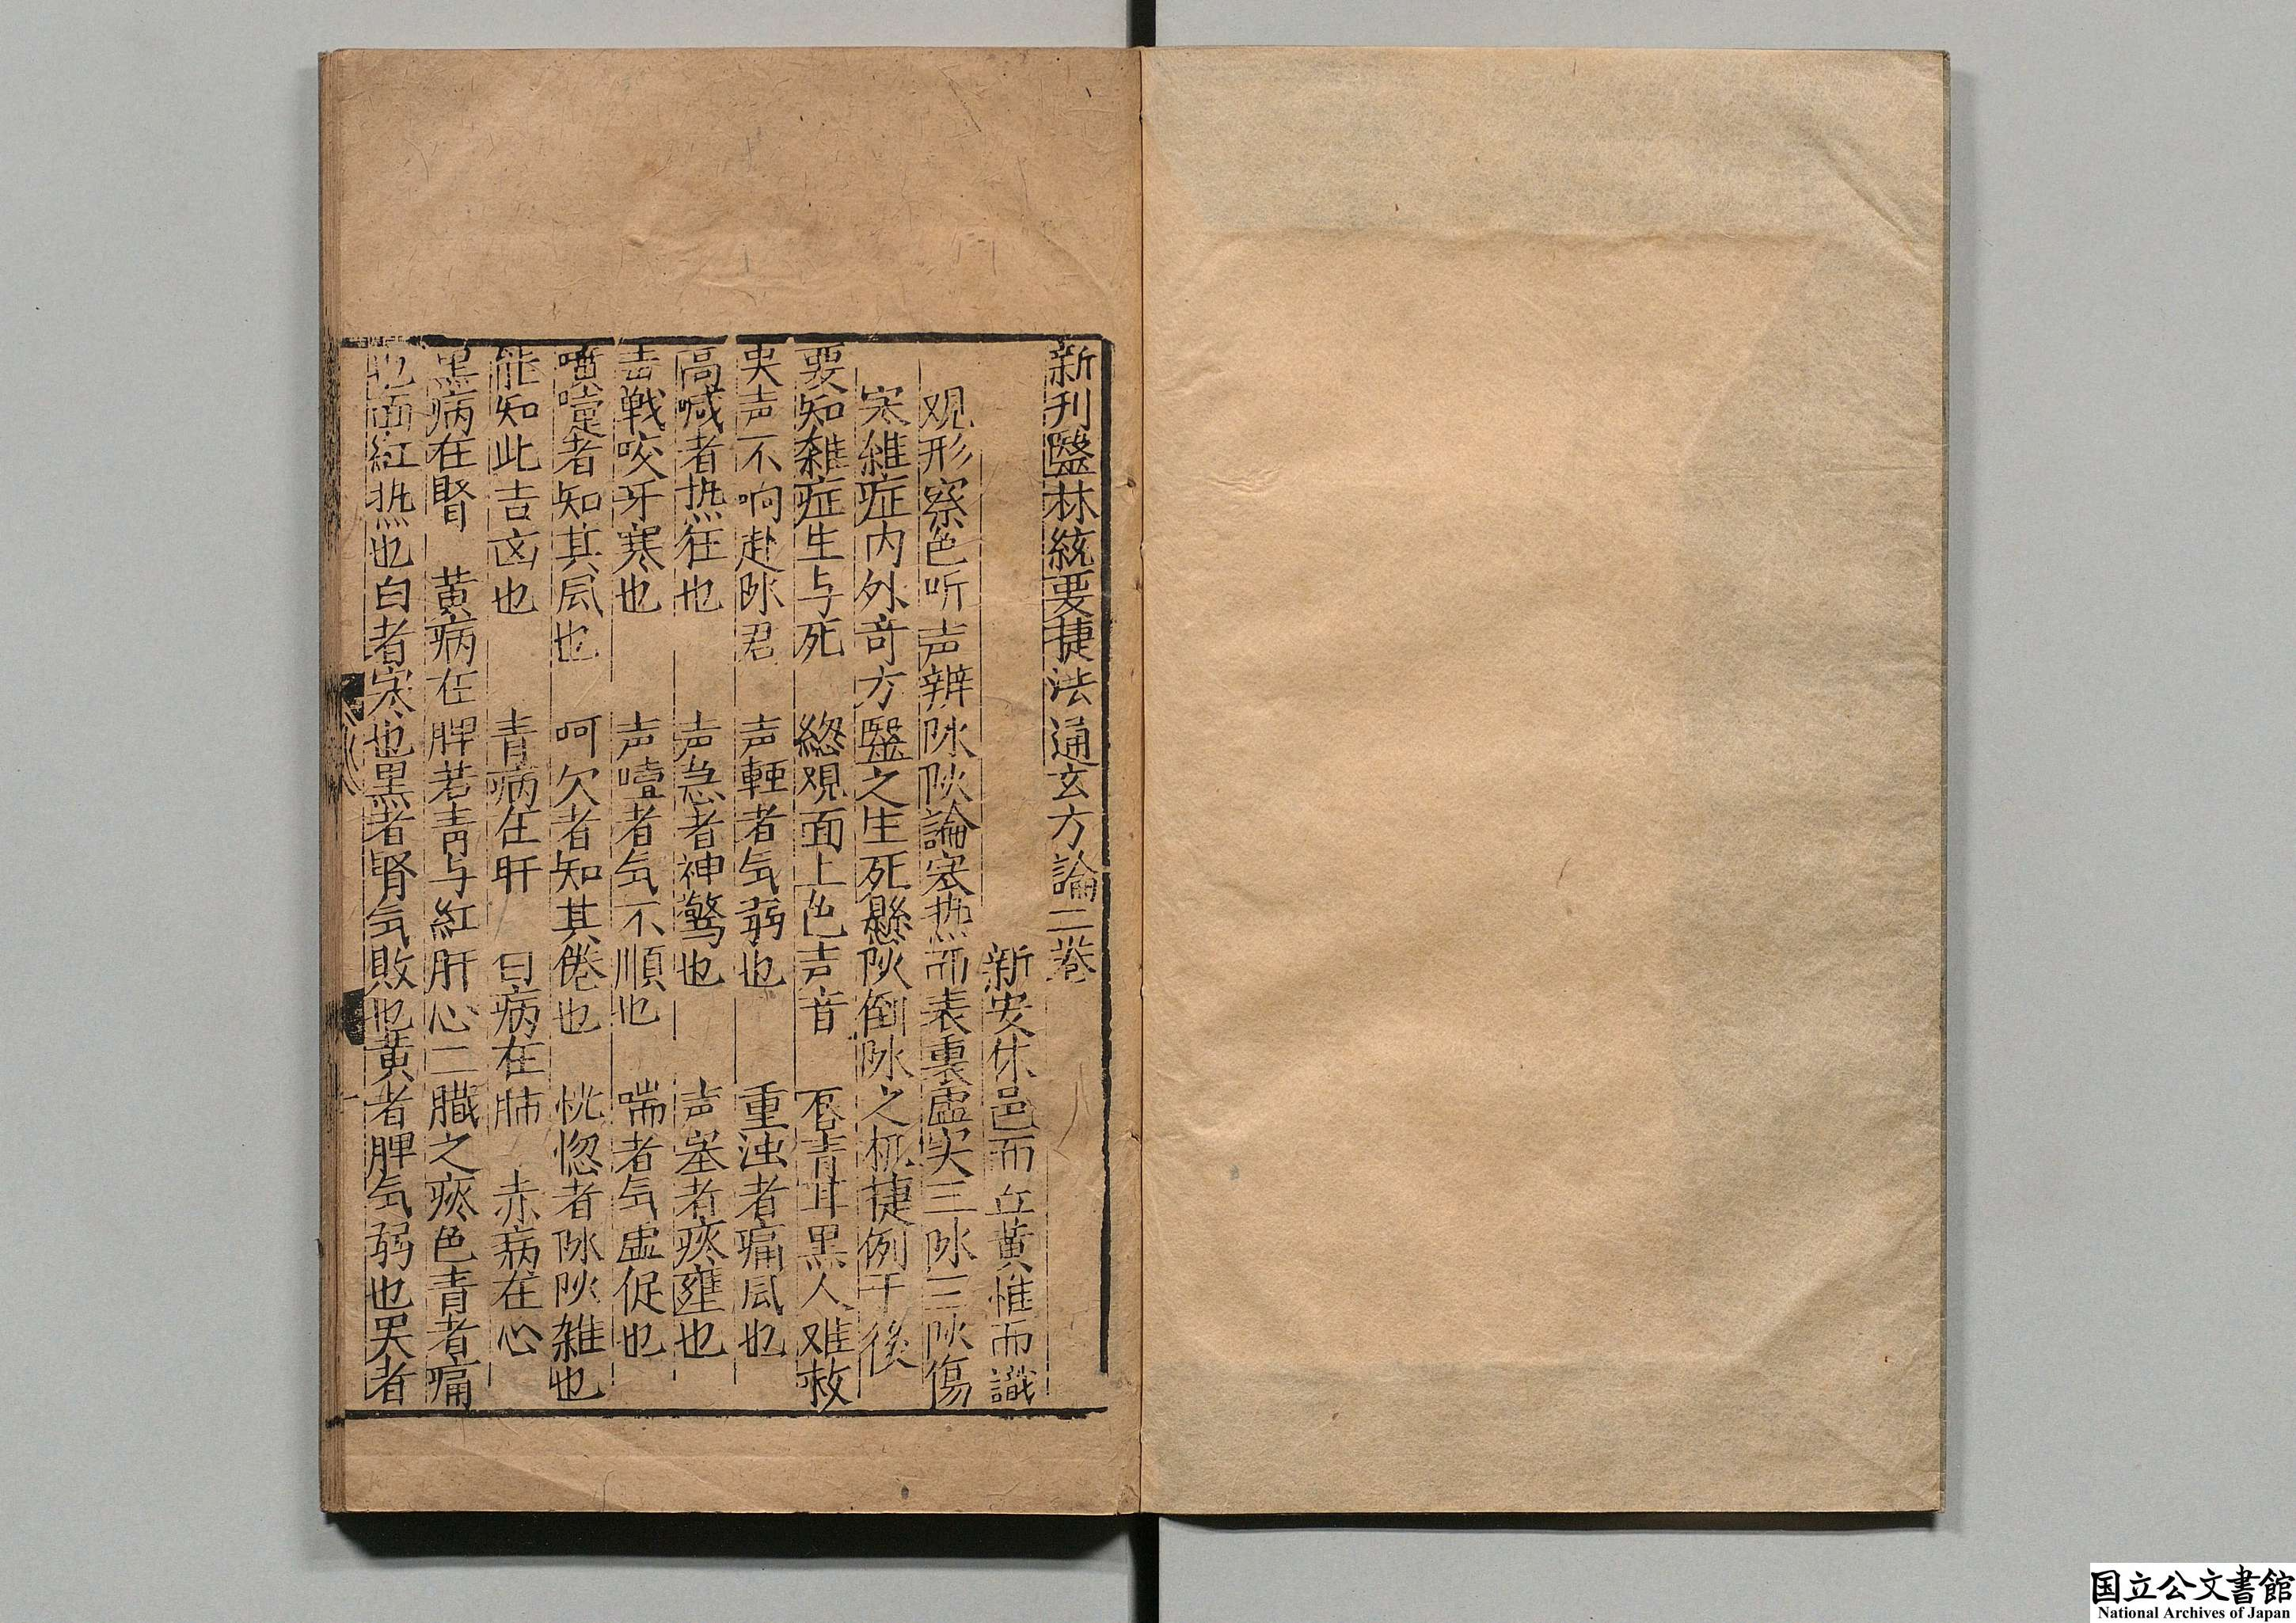 新刊醫林統要捷法通玄方論二卷
新安休邑而立黄惟而識
观形察色听声辨阦阥論寒热而表裏虛实三阦三阥傷
寒雜症内外竒方醫之生死懸阥倒阦之机捷例于後
要知雜症生与死 緫观面上色声音 唇青耳黒人难救
哭声不响赴阦君 声輕者気弱也 重浊者痛风也
高喊者热狂也 声急者神驚也 声塞者痰壅也
舌戰咬牙寒也 声嘻者気不順也 喘者気虛促也
噴嚏者知其风也 呵欠者知其倦也 恍惚者阦阥雜也
能知此吉凶也 青病在肝 白病在肺 赤病在心
黒病在腎 黄病在脾若青与紅肝心二臓之痰色青者痛
也面紅热也白者寒也黒者腎気敗也黄者脾気弱也哭者
国立公文書館
National Archives of Japan